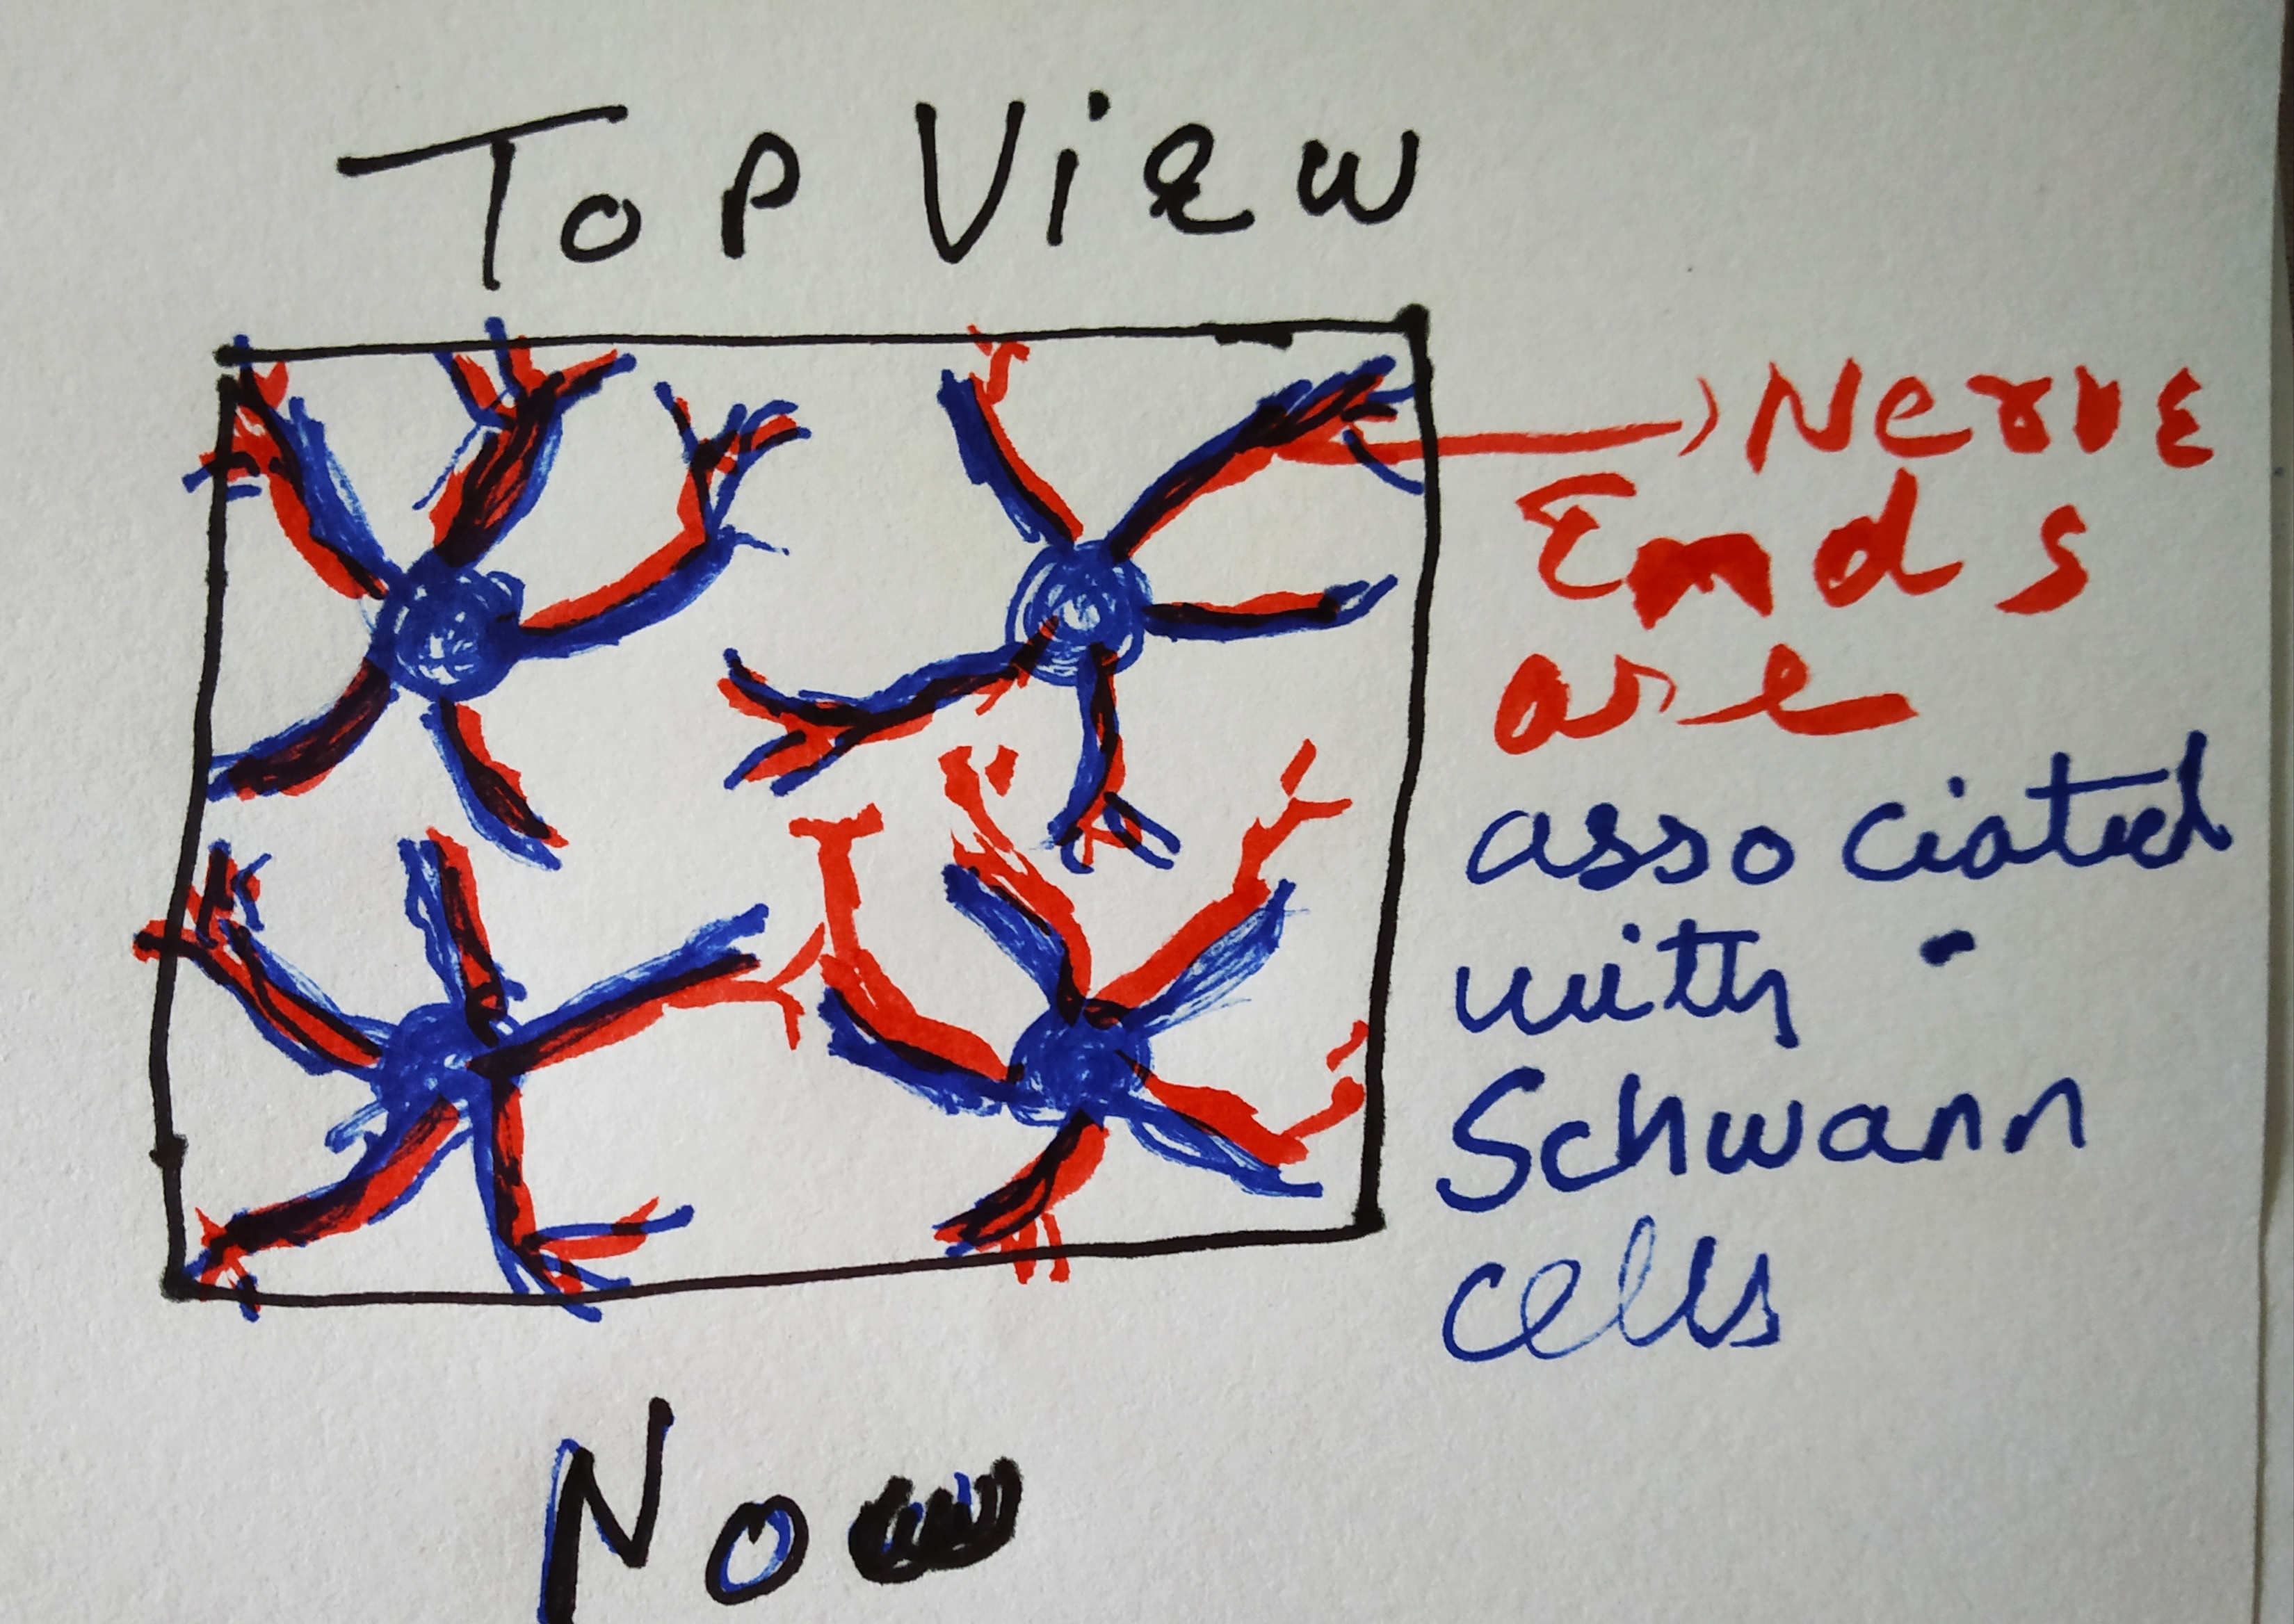 Top View
Nerve
Ends
are
associated
with
Schwann
cells
Now